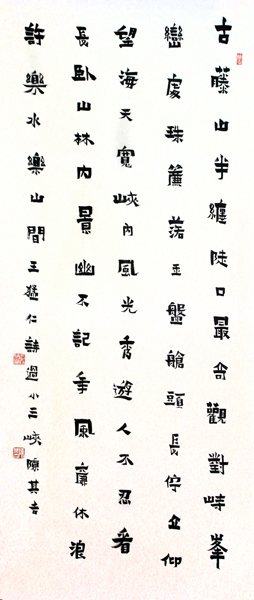 古藤山半纏陡口最奇觀對峙峯
巒處珠簾落玉盤艙頭長佇立仰
望海天寬峽內風光秀遊人不忍看
長臥山林內景幽不記年風塵休浪
許樂水樂山間王猛仁詩過小三峽陳其吉